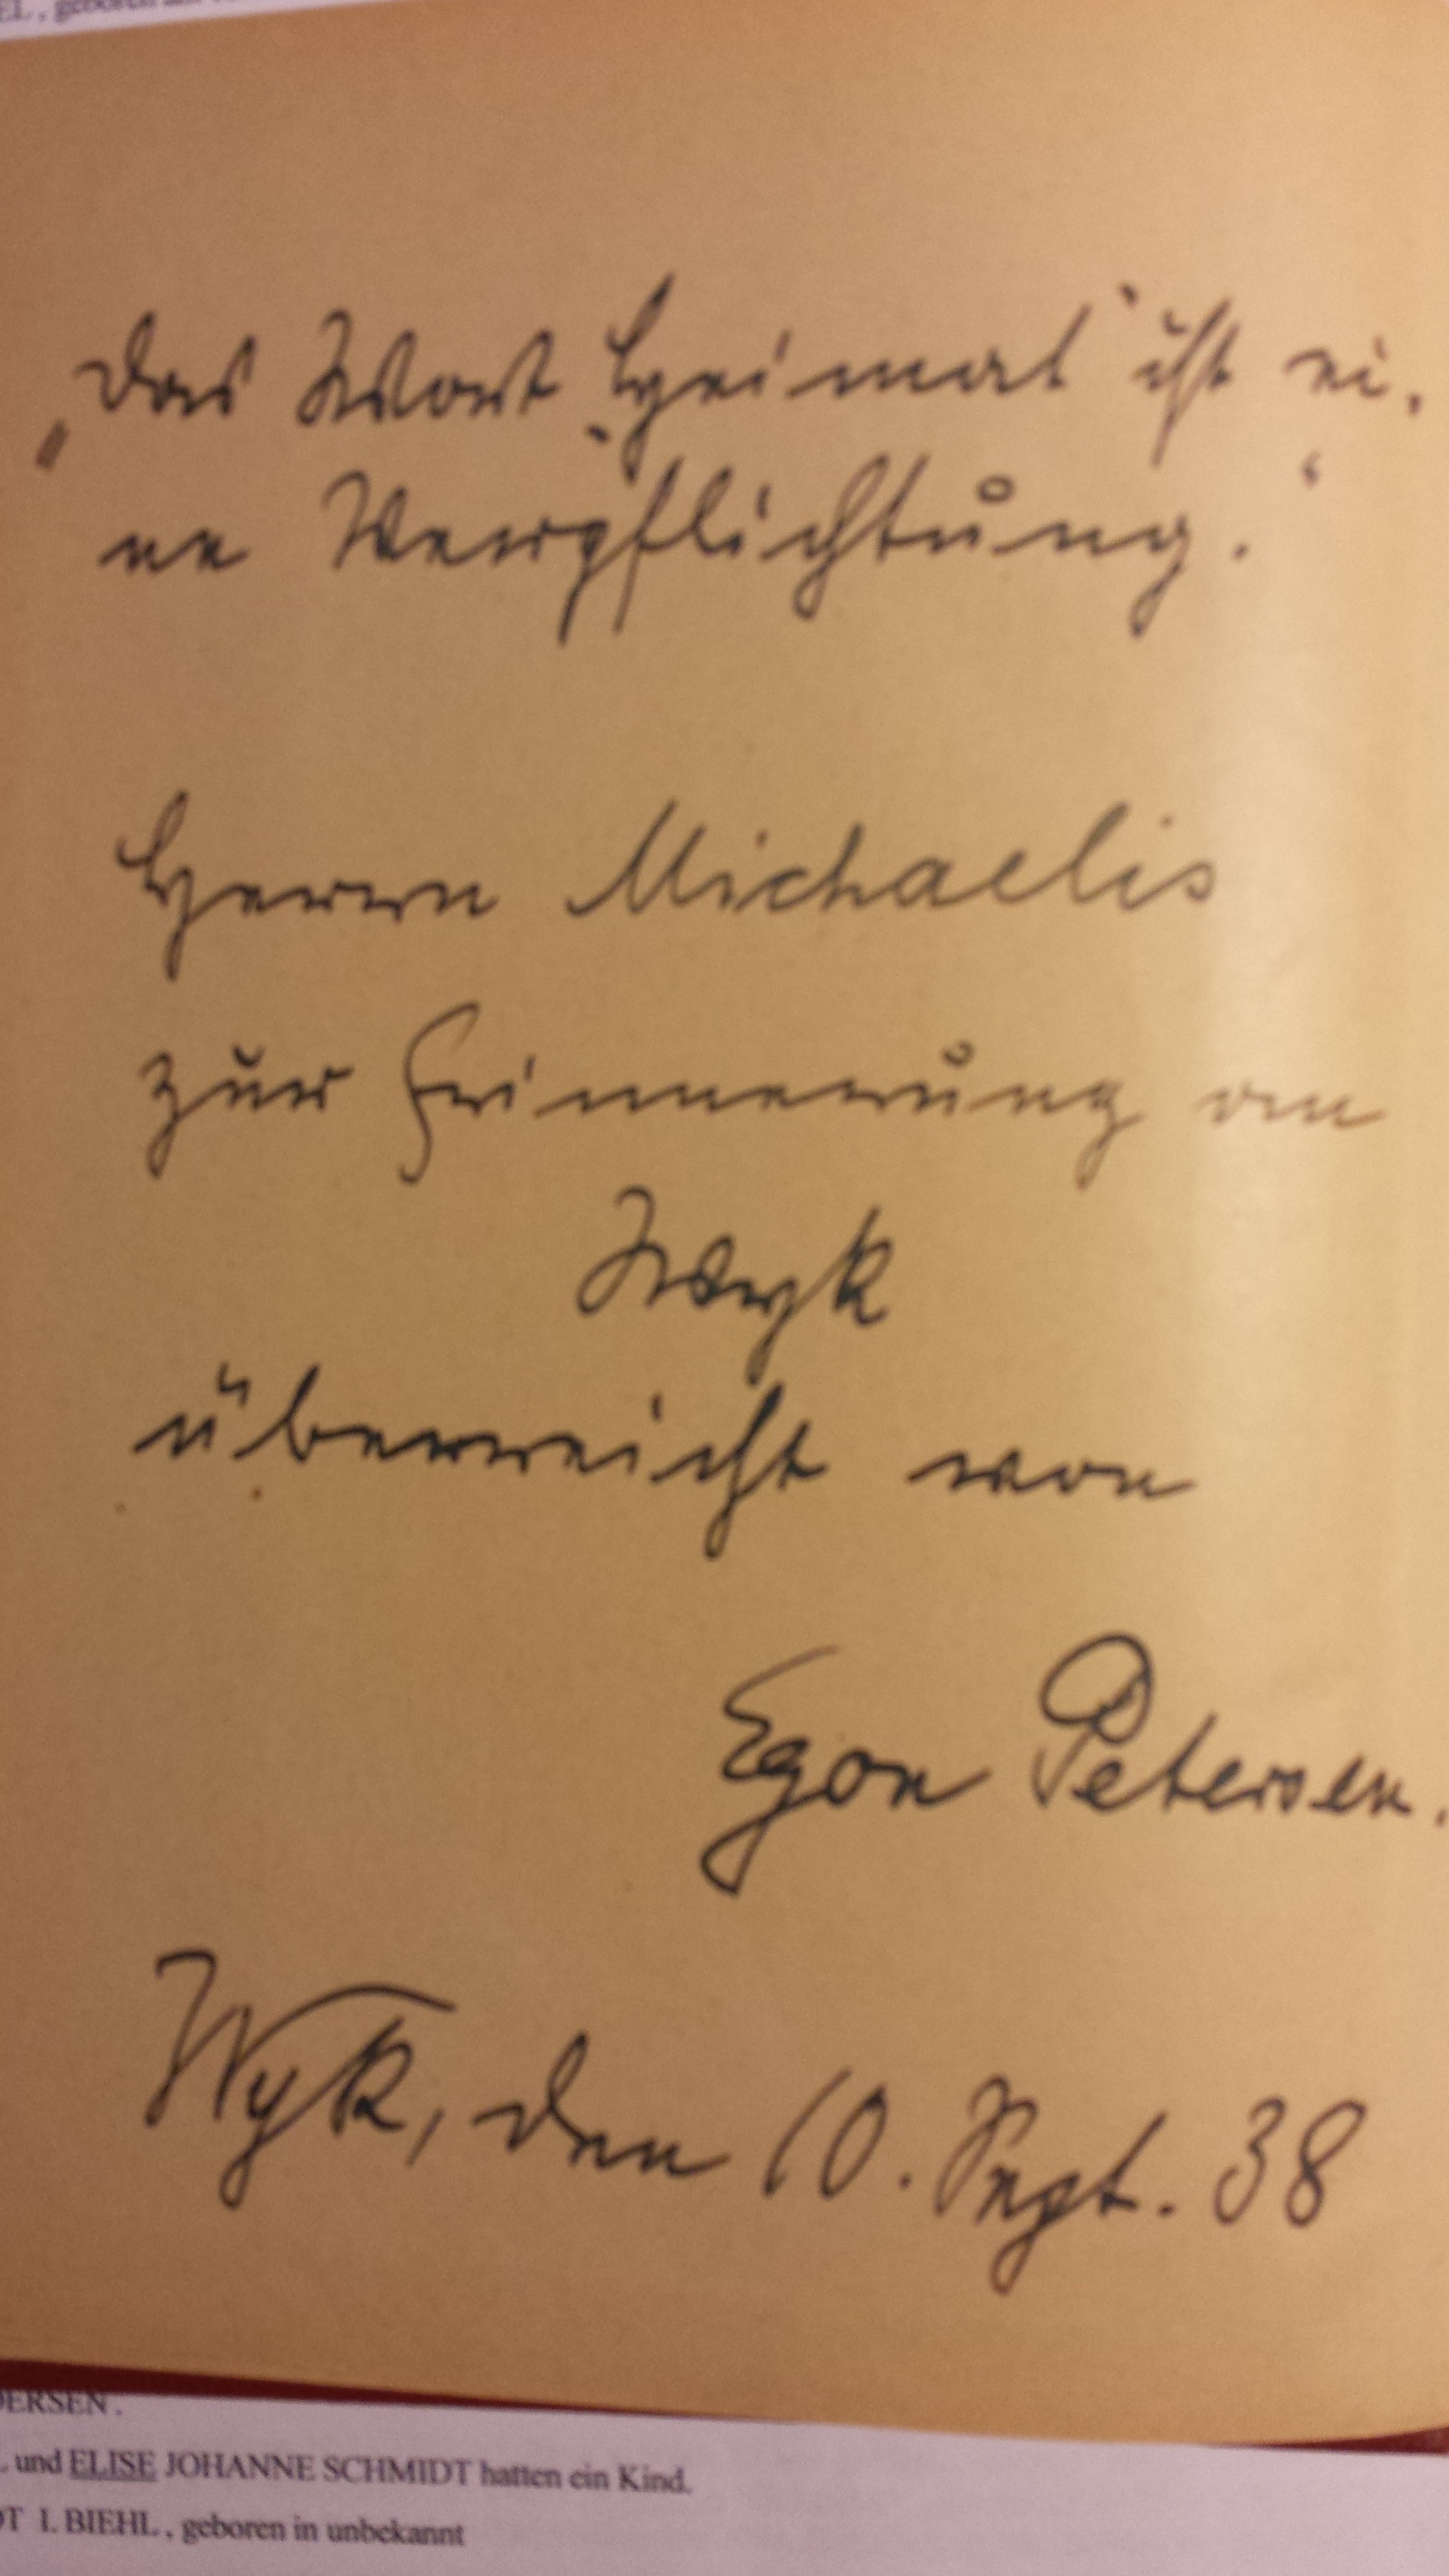 EL, geboren am
„Das Wort ‚Heimat‘ ist ei-
ne Verpflichtung.“
Herrn Michaelis
zur Erinnerung an
Wyk
überreicht von
Egon Petersen.
Wyk, den 10. Sept. 38
DERSEN.
. und ELISE JOHANNE SCHMIDT hatten ein Kind.
DT I. BIEHL, geboren in unbekannt